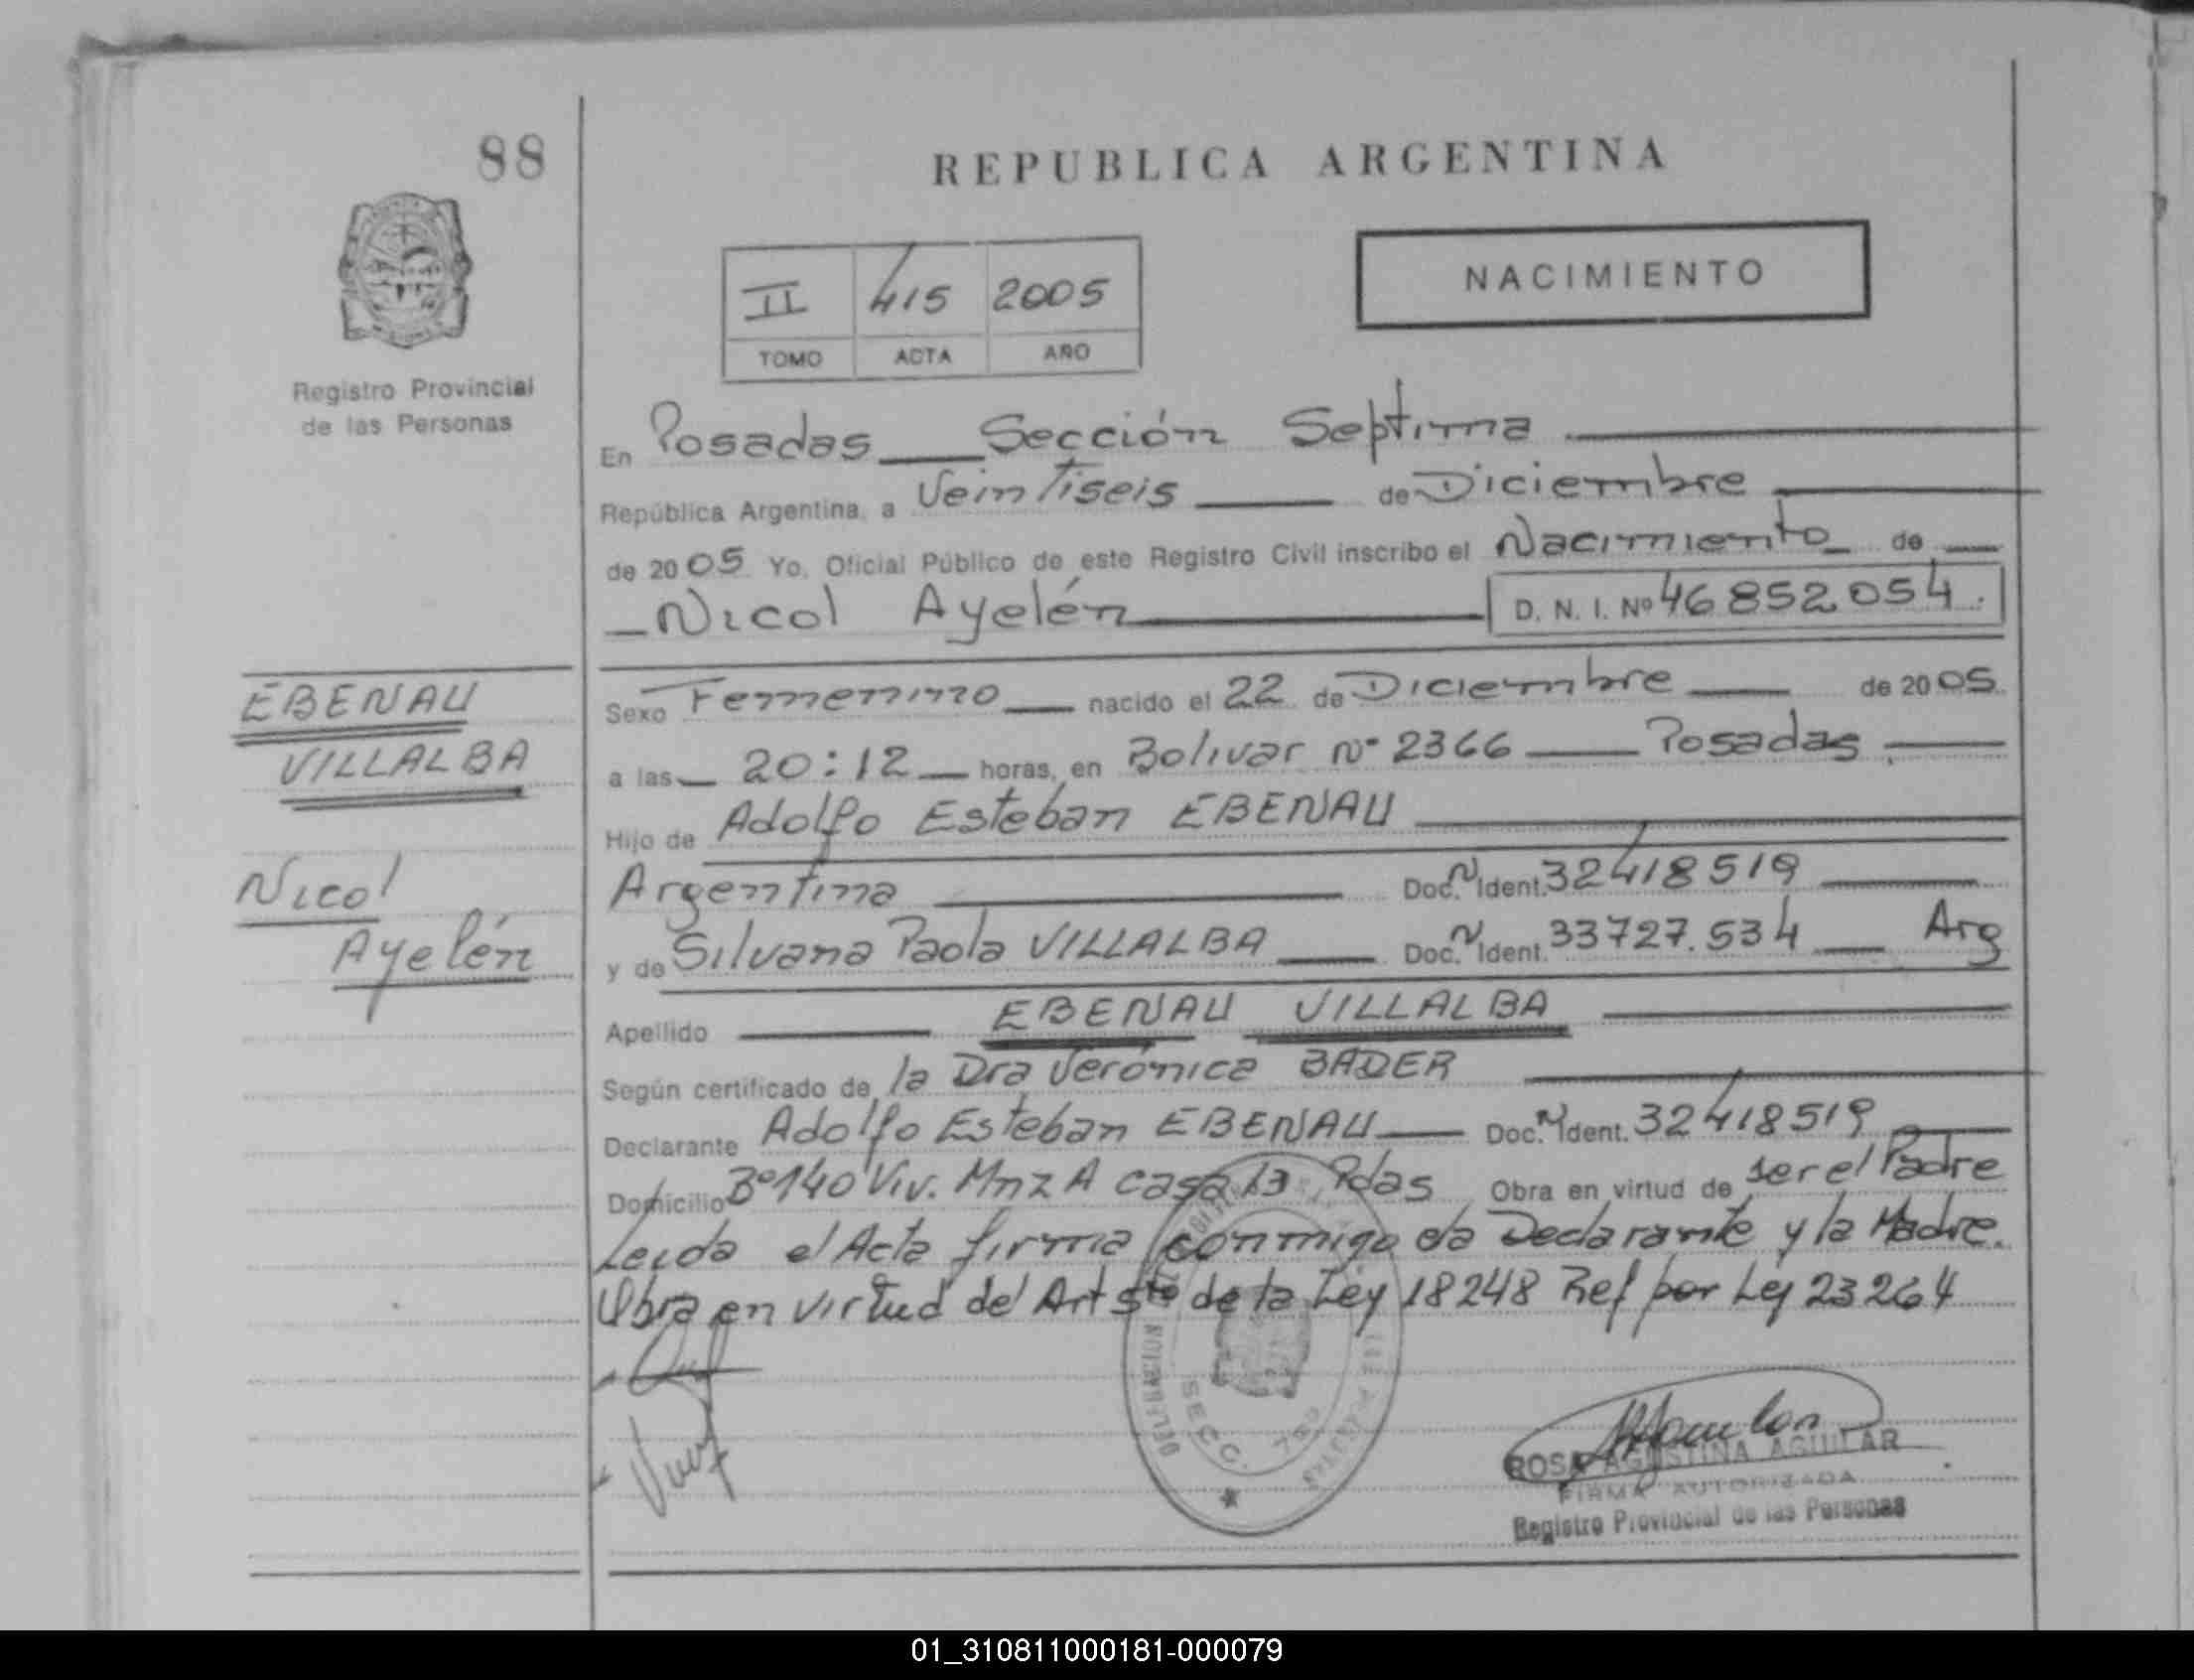 88
REPUBLICA ARGENTINA
NACIMIENTO
II 415 2005
TOMO ACTA AÑO
Registro Provincial
de las Personas
En Posadas Sección Septima
República Argentina, a Veintiseis de Diciembre
de 2005 Yo, Oficial Público de este Registro Civil inscribo el Nacimiento de
Nicol Ayelén D. N. I. Nº 46852054.
EBENAU
VILLALBA
Nicol
Ayelén
Sexo Femenino nacido el 22 de Diciembre de 2005
a las 20:12 horas, en Bolivar Nº 2366 Posadas.
Hijo de Adolfo Esteban EBENAU
Argentina Doc. N Ident. 32418519
y de Silvana Paola VILLALBA Doc. N Ident. 33727.534 Arg
Apellido EBENAU VILLALBA
Según certificado de la Dra Verónica BADER
Declarante Adolfo Esteban EBENAU Doc. N Ident. 32418519
Domicilio Bº 140 Viv. Mnz A casa 13 Pdas Obra en virtud de ser el Padre
Leida el Acta firma conmigo Declarante y la Madre.
Obra en virtud del Art 5to de la Ley 18248 Ref por Ley 23264
DELEGACION
SECC. 7ma
ROSA AGUSTINA AGUILAR
FIRMA AUTORIZADA
Registro Provincial de las Personas
01_310811000181-000079